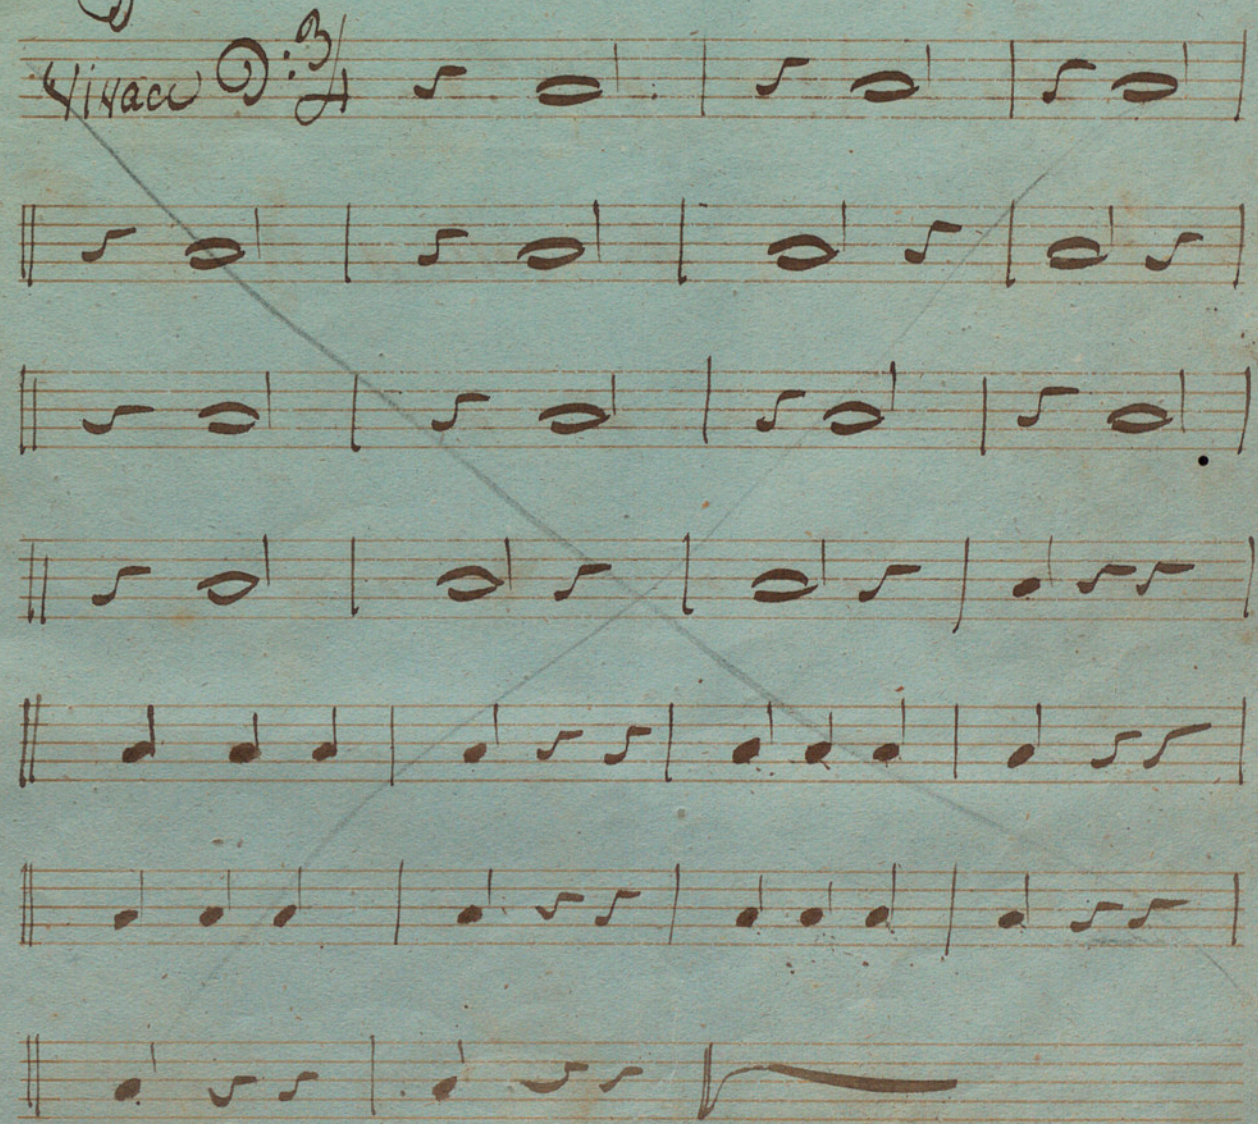 Vivace 3/4